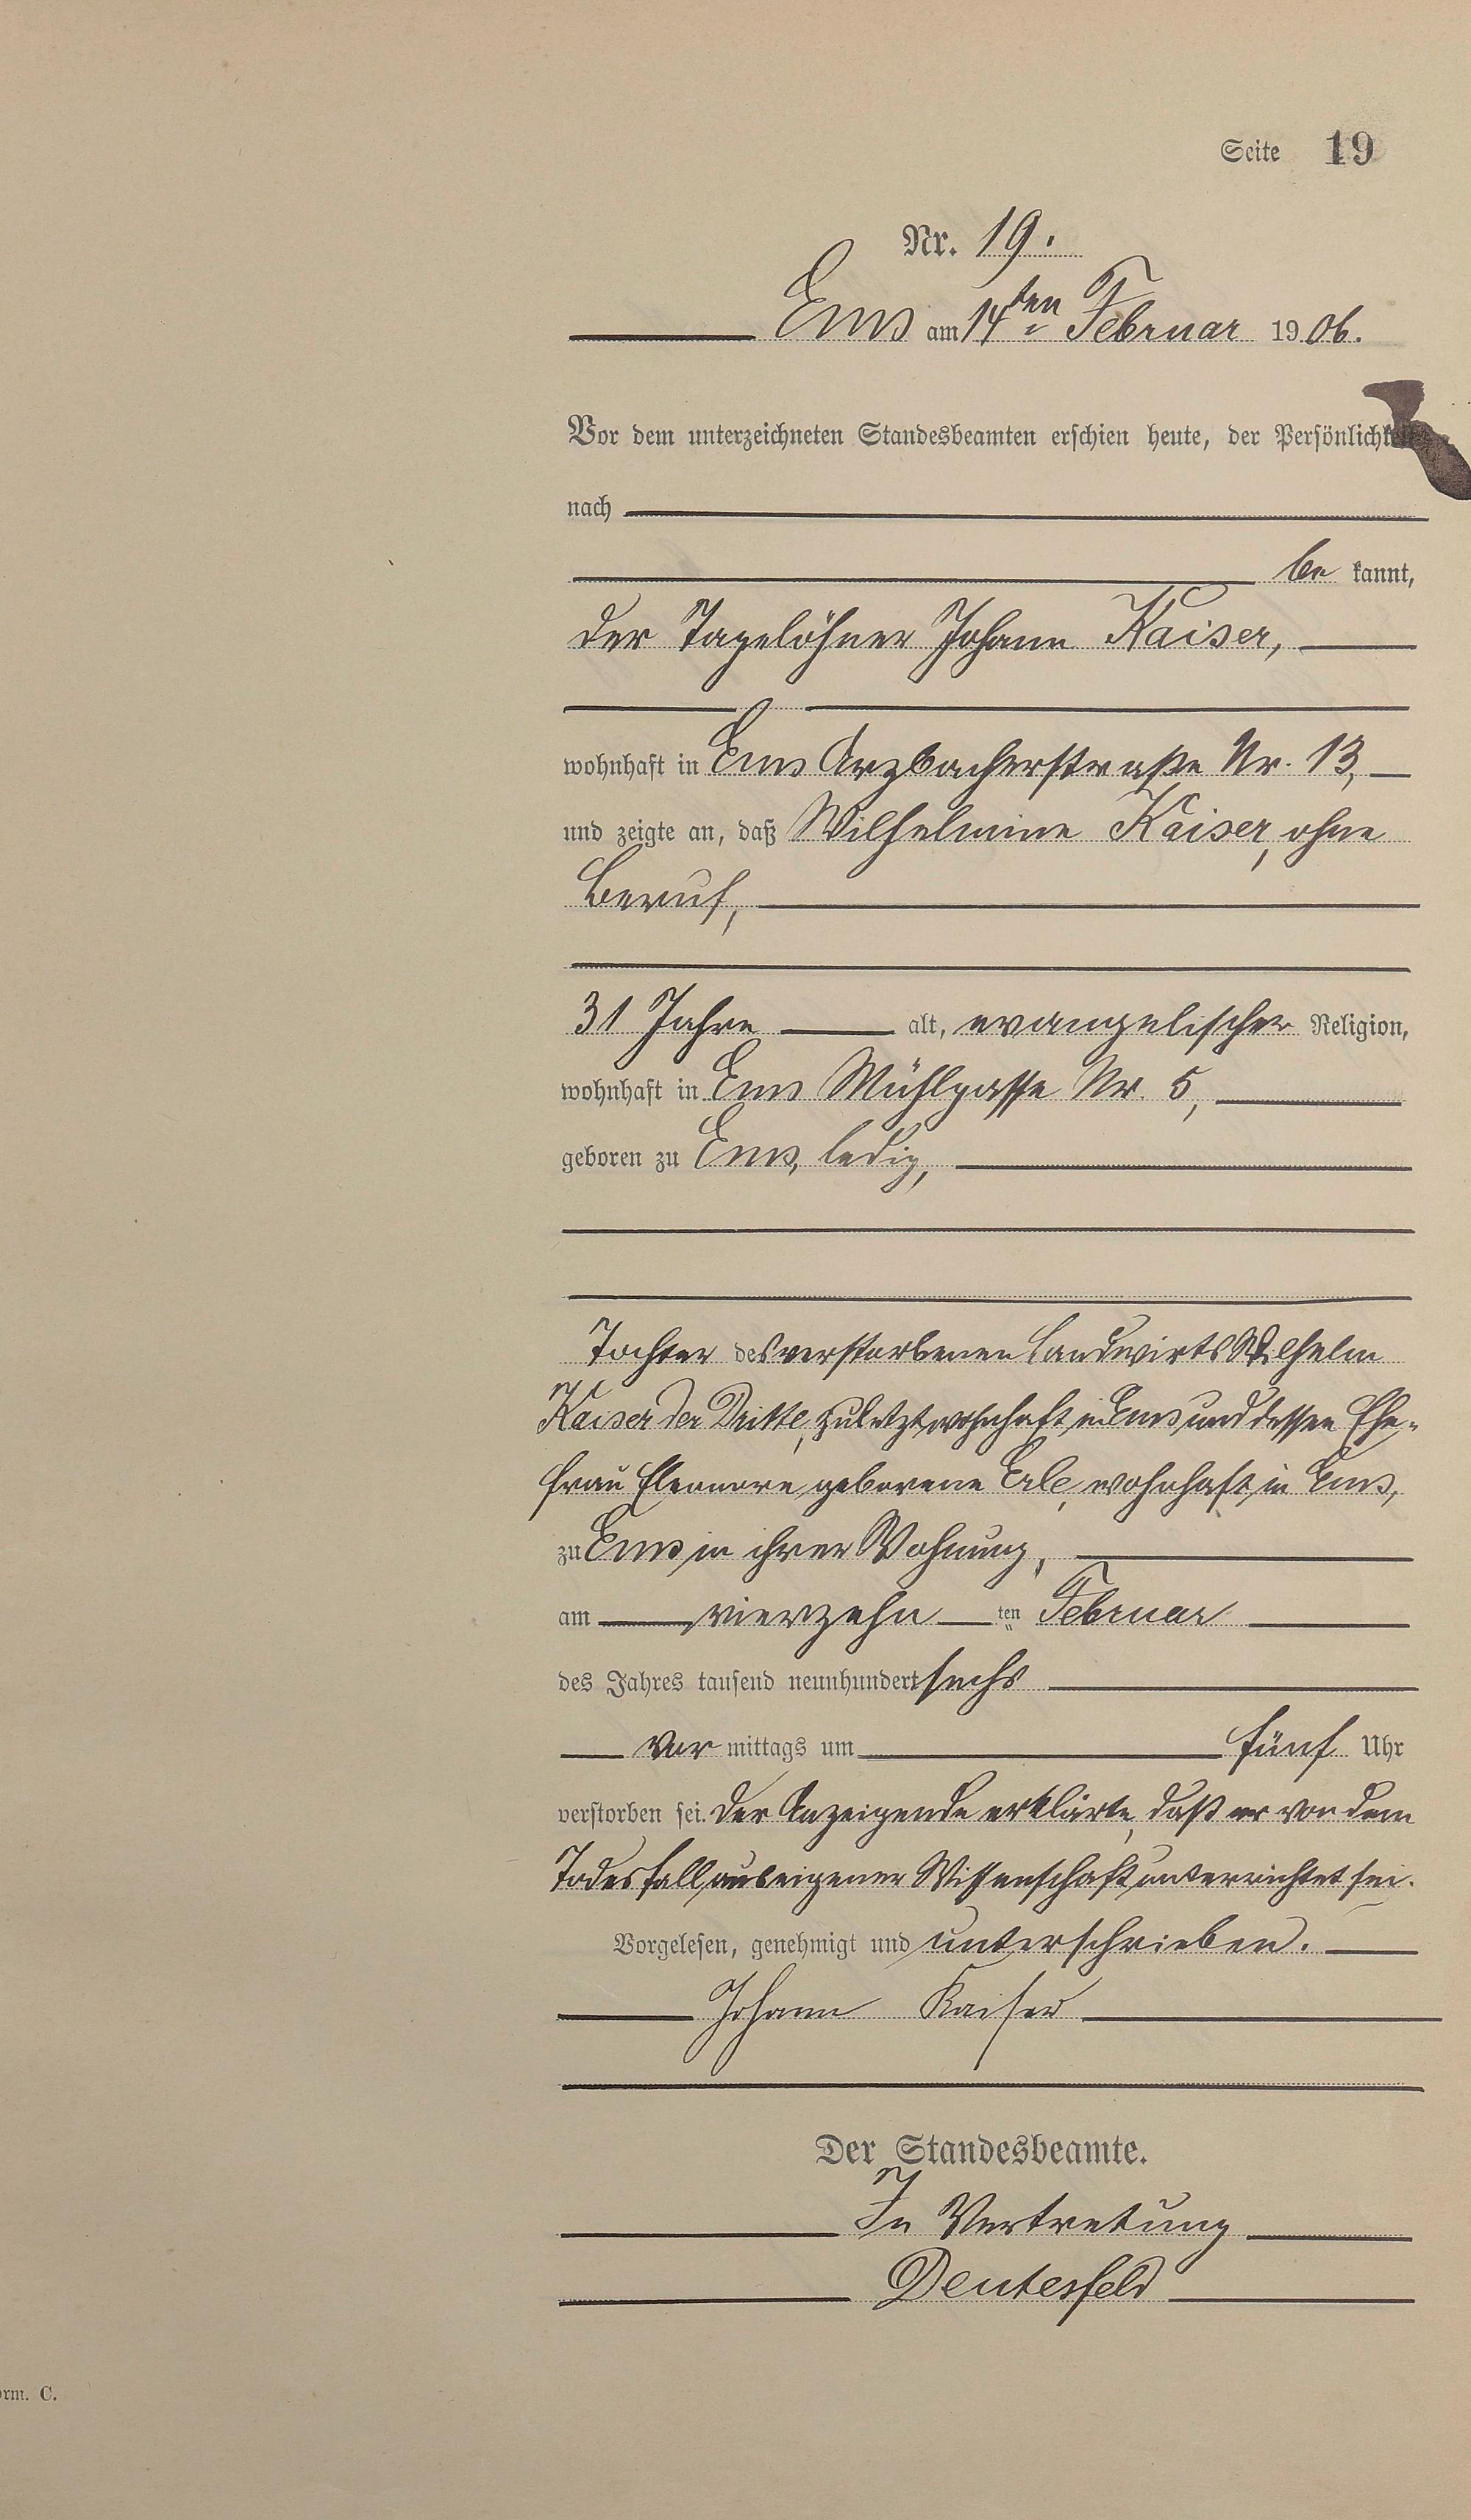 Seite 19
Nr. 19.
Ems am 14ten Februar 1906.
Vor dem unterzeichneten Standesbeamten erschien heute, der Persönlichkeit
nach
be kannt,
der Tagelöhner Johann Kaiser,
wohnhaft in Ems Arzbacherstraße Nr. 13,
und zeigte an, daß Wilhelmine Kaiser, ohne
Beruf,
31 Jahre alt, evangelischer Religion,
wohnhaft in Ems Mühlgasse Nr. 5,
geboren zu Ems, ledig,
Tochter des verstorbenen Landwirts Wilhelm
Kaiser der Dritte, zuletzt wohnhaft in Ems und dessen Ehe-
frau Eleonore geborene wohnhaft in Ems,
zu Ems in ihrer Wohnung,
am vierzehn ten Februar
des Jahres tausend neunhundert sechs
vor mittags um fünf Uhr
verstorben sei. Der Anzeigende erklärte, daß er von dem
Todesfall aus eigener Wissenschaft unterrichtet sei.
Vorgelesen, genehmigt und unterschrieben.
Johann Kaiser
Der Standesbeamte.
In Vertretung
Deutesfeld
orm. C.